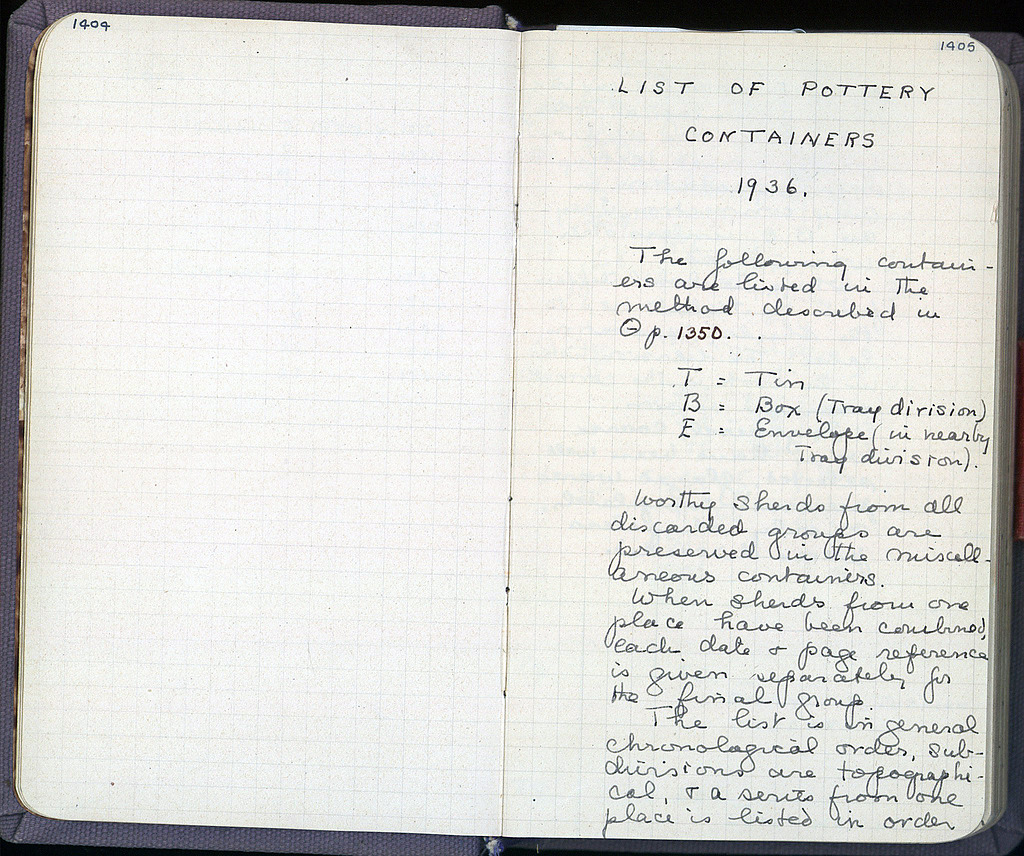 1404
1405
LIST OF POTTERY
CONTAINERS
1936.
The following contain-
ers are listed in the
method described in
Θ p. 1350.
T = Tin
B = Box (Tray division)
E = Envelope (in nearby
Tray division).
Worthy sherds from all
discarded groups are
preserved in the miscell-
aneous containers.
When sherds from one
place have been combined,
each date & page reference
is given separately for
the final group.
The list is in general
chronological order, sub-
divisions are topographi-
cal, & a series from one
place is listed in order